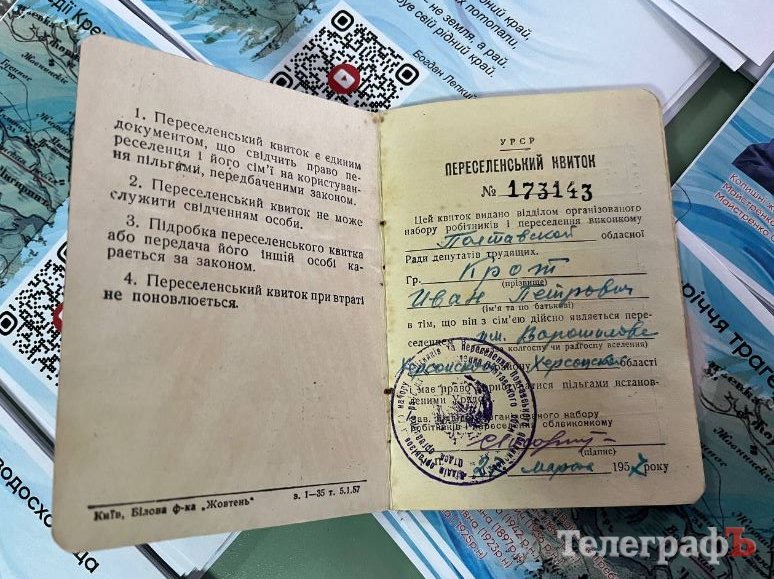 не земля, а рай.
потопали,
ує свій рідний край.
Богдан Лепкий
1. Переселенський квиток є єдиним
документом, що свідчить право пе-
реселенця і його сім'ї на користуван-
ня пільгами, передбаченими законом.
2. Переселенський квиток не може
служити свідченням особи.
3. Підробка переселенського квитка
або передача його іншій особі ка-
рається за законом.
4. Переселенський квиток при втраті
не поновлюється.
Київ, Білова ф-ка „Жовтень"
в. 1—35 т. 5.1.57
УРСР
ПЕРЕСЕЛЕНСЬКИЙ КВИТОК
№ 173143
Цей квиток видано відділом організованого
набору робітників і переселення виконкому
Полтавской обласної
Ради депутатів трудящих.
Гр. Крот
(прізвище)
Иван Петрович
(ім'я та по батькові)
в тім, що він з сім'єю дійсно являється пере-
селенцем им. Ворошилова
(назва колгоспу чи радгоспу вселення)
Херсонско району Херсонской області
і має право користуватися пільгами встанов-
леними Урядом
Зав. відділом організованого набору
робітників і переселення облвиконкому
(підпис)
марта 1957 року
річчя траге
водосхо
ТелеграфЪ